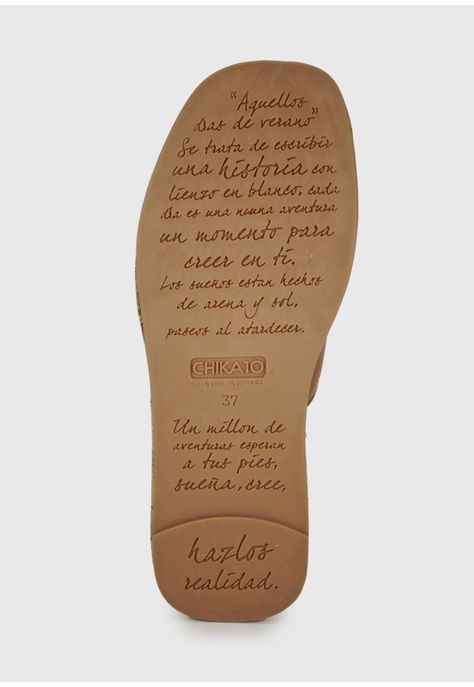 "Aquellos
Das de verano"
Se trata de escribir
una historia con
lienzo en blanco, cada
Da es una nuuna aventura
un momento para
creer en ti.
Los sueños estan hechos
de arena y sol,
paseos al atardecer.
CHIKA10
37
Un millon de
aventuras esperan
a tus pies,
sueña, cree,
hazlos
realidad.